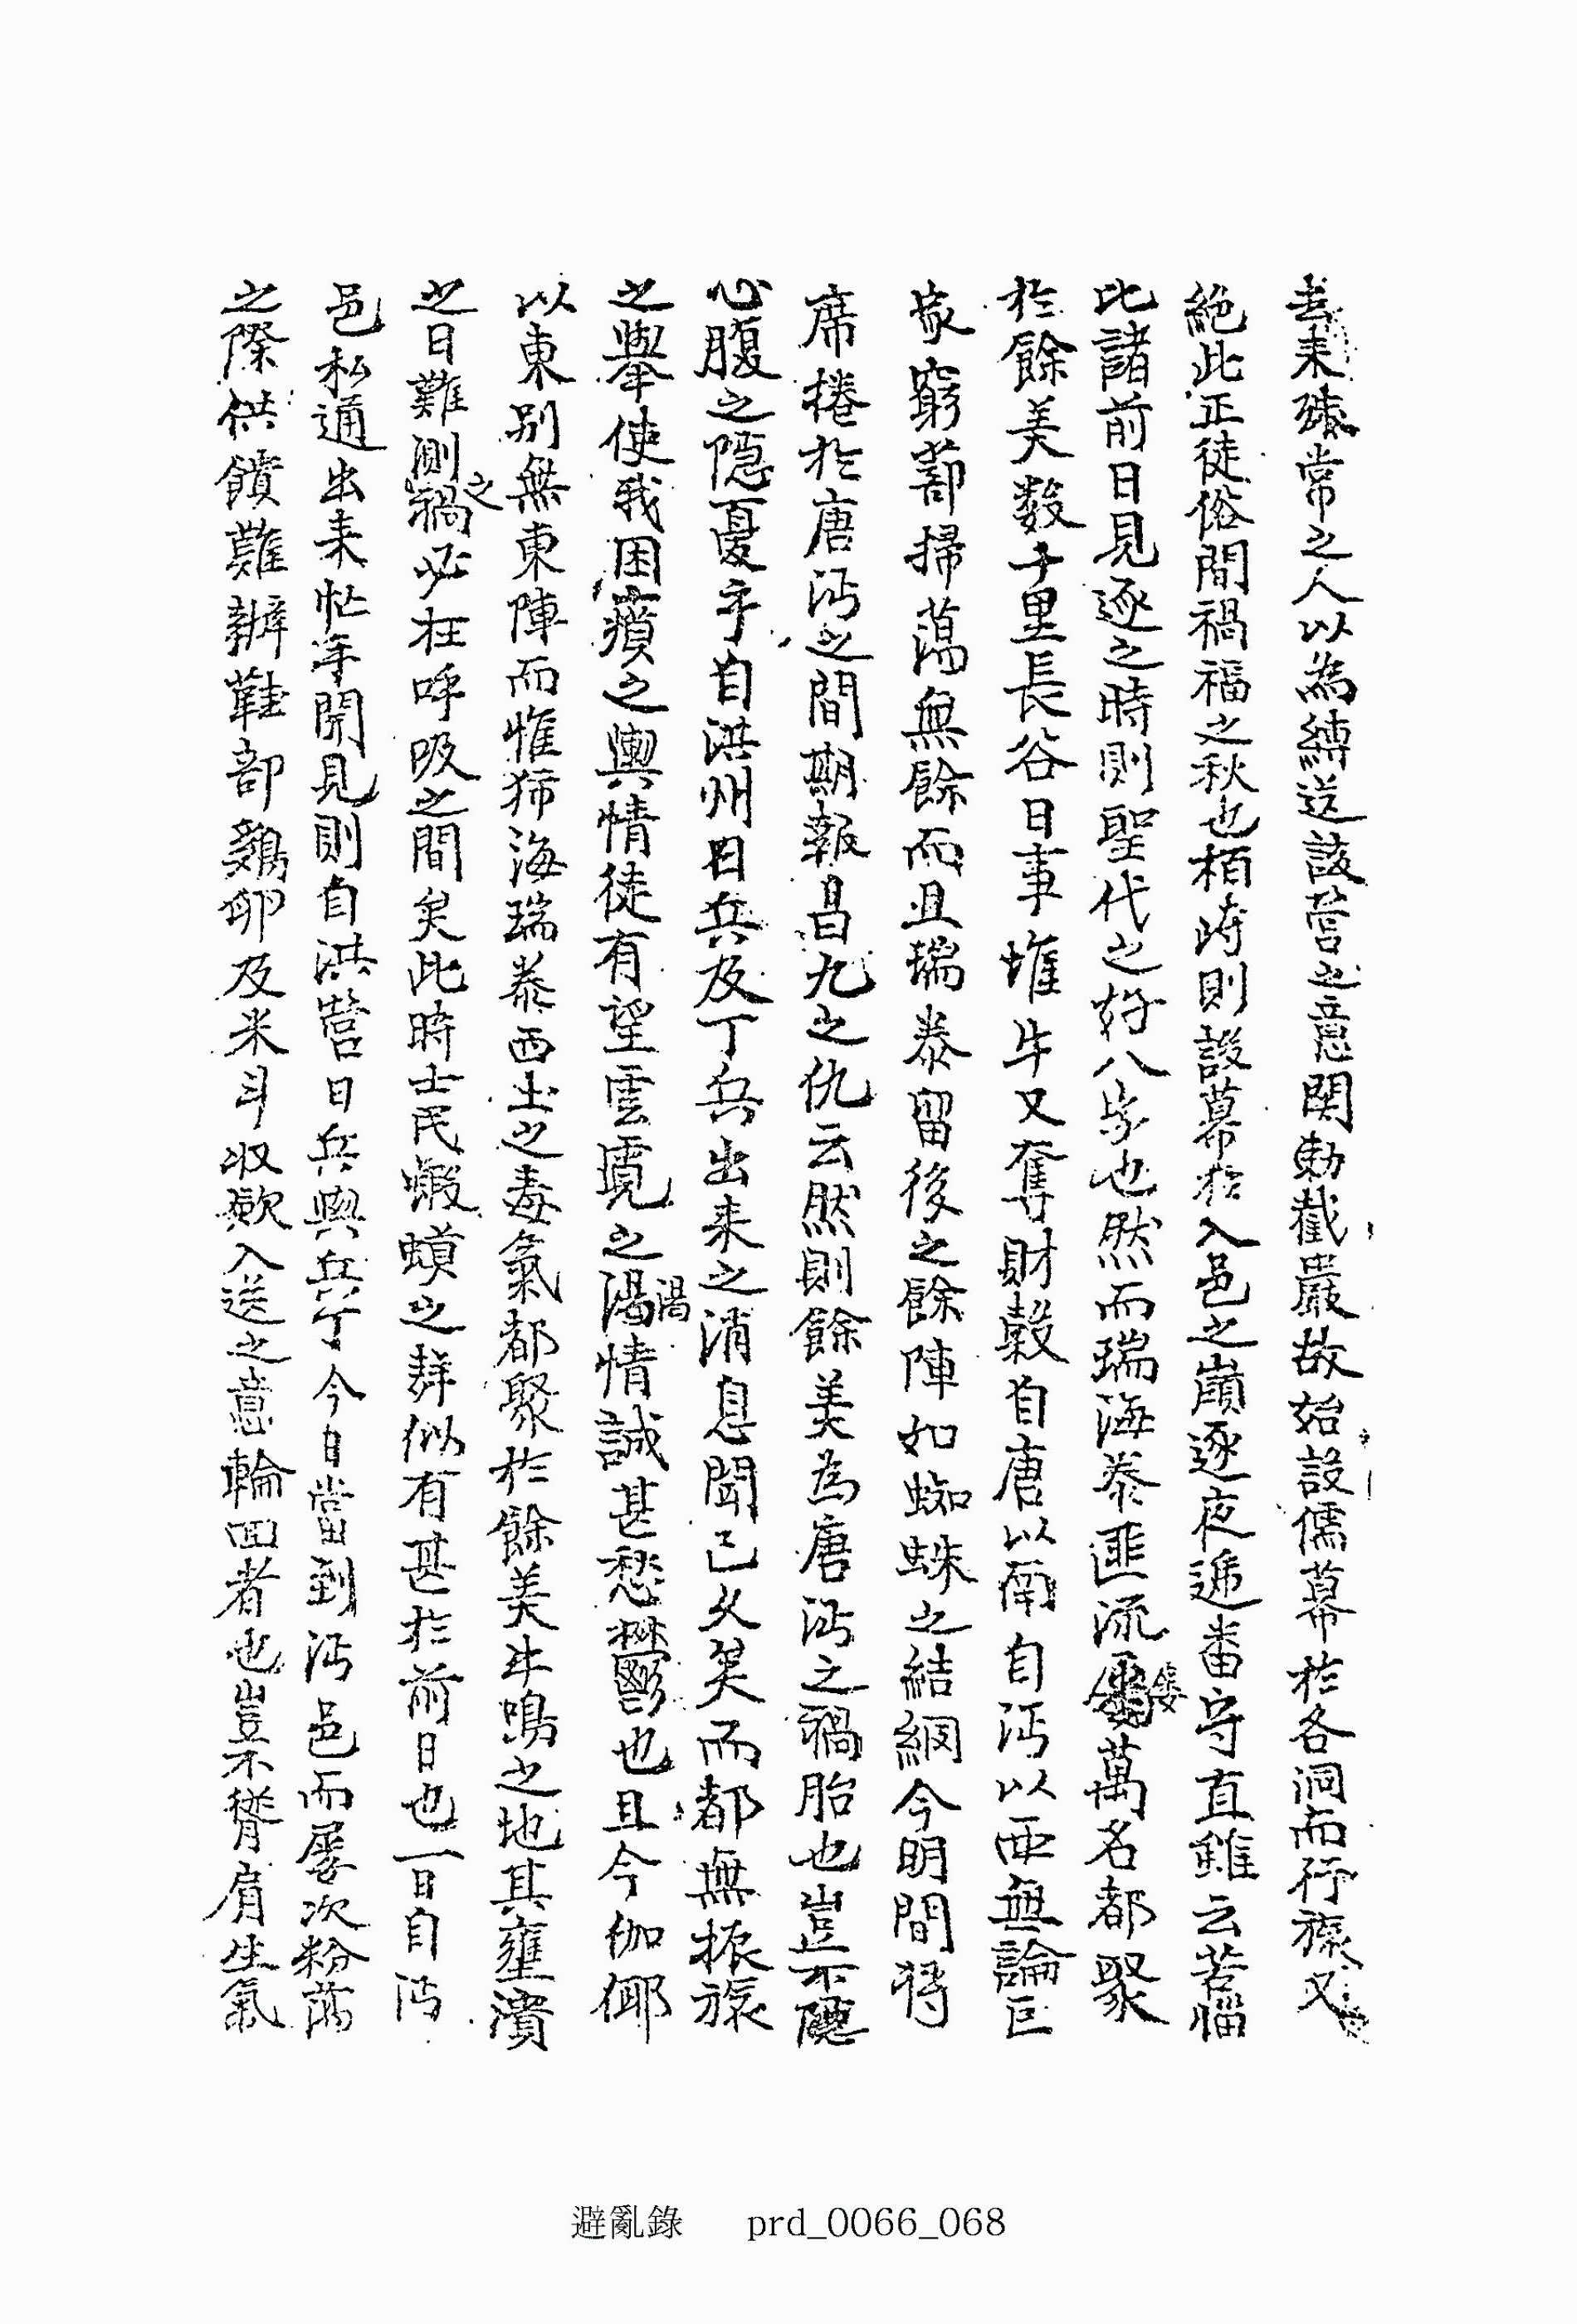 去来殊常之人以為縛送該營之意関勅截嚴故始設儒幕於各洞而行旅又
絶此正徒俗間禍福之秋也栢峙則設幕於入邑之巓逐夜遞番守直雖云苦惱
比諸前日見逐之時則聖代之好八字也然而瑞海泰匪流屢萬名都聚
於餘美数千里長谷日事堆牛又奪財穀自唐以南自沔以西無論巨
家窮蔀掃蕩無餘而且瑞泰留後之餘陣如蜘蛛之結網今明間将
席捲於唐沔之間期報昌九之仇云然則餘美為唐沔之禍胎也豈不隱
心腹之隱憂乎自洪州日兵及丁兵出来之消息聞已久矣而都無振旅
之擧使我困瘼之輿情徒有望雲霓之渴情誠甚愁鬱也且今伽倻
以東別無東陣而惟沛海瑞泰西土之毒氣都聚於餘美牛鳴之地其壅潰
之日難測之禍必在呼吸之間矣此時士民蝦蟆之群似有甚於前日也一日自沔
邑私通出来忙手開見則自洪營日兵與兵丁今日當到沔邑而屡次粉蕩
之際供饋難辦鞋部鷄卵及米斗収歛入送之意輪回者也豈不聳肩生氣
避亂錄 prd_0066_068